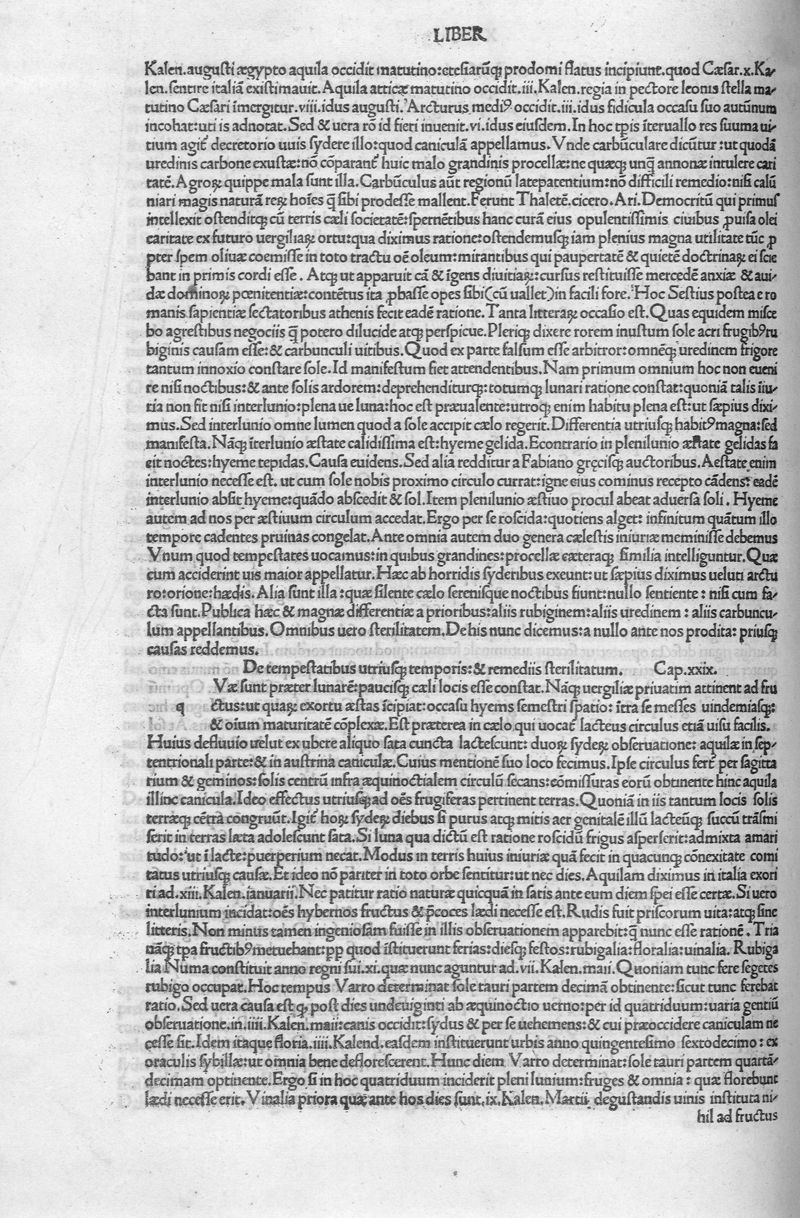 LIBER
Kalen.augusti ægypto aquila occidit matutino:etesiarūq; prodomi flatus incipiunt.quod Cæsar.x.Ka/
len.sentire italiā existimauit. Aquila atticæ matutino occidit.iii.Kalen.regia in pectore leonis stella ma/
tutino Cæsari īmergitur.viii.idus augusti. Arcturus mediꝰ occidit.iii.idus fidicula occasu suo autūnum
incohat:uti is adnotat. Sed & uera rō id fieri inuenit.vi.idus eiusdem. In hoc tp̄is īteruallo res sūuma ui/
tium agit̄ decretorio uuis sydere illo:quod caniculā appellamus. Vnde carbūculare dicūtur:ut quodā
uredinis carbone exustæ:nō cōparant̄ huic malo grandinis procellæ:ne quæq; unq̄ annonæ intulere cari
tatē. Agroꝝ quippe mala sunt illa. Carbūculus aūt regionū latepatentium:nō difficili remedio:nisi calū
niari magis naturā reꝝ hoīes q̄ sibi prodesse mallent. Ferunt Thaletē.cicero. Ari. Democritū qui primus
intellexit ostenditq; cū terris cæli societatē:spernētibus hanc curā eius opulentissimis ciuibus ꝓuisa olei
caritate ex futuro uergiliaꝝ ortu:qua diximus ratione:ostendemusq; iam plenius magna utilitate tūc ꝓ
pter spem oliuæ coemisse in toto tractu oē oleum:mirantibus qui paupertatē & quietē doctrinaꝝ ei scie
bant in primis cordi esse . Atq; ut apparuit cā & īgens diuitiaꝝ:cursus restituisse mercedē anxiæ & aui/
dæ dominoꝝ pœnitentiæ:contētus ita ꝓbasse opes sibi(cū uallet)in facili fore. Hoc Sestius postea e ro
manis sapientiæ sectatoribus athenis fecit eadē ratione. Tanta litteraꝝ occasio est. Quas equidem misce
bo agrestibus negociis q̄ potero dilucide atq; perspicue. Pleriq; dixere rorem inustum sole acri frugibꝰru
biginis causam esse:& carbunculi uitibus. Quod ex parte falsum esse arbitror:omnēq; uredinem frigore
tantum innoxio constare sole. Id manifestum fiet attendentibus. Nam primum omnium hoc non eueni
re nisi noctibus:& ante solis ardorem:deprehenditurq;:totumq; lunari ratione constat:quoniā talis īiu/
ria non fit nisi interlunio:plena ue luna:hoc est præualente:utroq; enim habitu plena est:ut sæpius dixi/
mus. Sed interlunio omne lumen quod a sole accipit cælo regerit. Differentia utriusq; habitꝰmagna:sed
manifesta. Nāq; īterlunio æstate calidissima est:hyeme gelida. Econtrario in plenilunio æstate gelidas fa
cit noctes:hyeme tepidas. Causa euidens. Sed alia redditur a Fabiano gręcisq; auctoribus. Aestate enim
interlunio necesse est. ut cum sole nobis proximo circulo currat:igne eius cominus recepto cādens: eadē
interlunio absit hyeme:quādo abscedit & sol. Item plenilunio æstiuo procul abeat aduersa soli . Hyeme
autem ad nos per æstiuum circulum accedat. Ergo per se roscida:quotiens alget: infinitum quātum illo
tempore cadentes pruinas congelat. Ante omnia autem duo genera cælestis iniuriæ meminisse debemus
Vnum quod tempestates uocamus:in quibus grandines:procellæ cæteraq; similia intelliguntur. Quæ
cum acciderint uis maior appellatur. Hæc ab horridis syderibus exeunt:ut sæpius diximus ueluti arctu
ro:orione:hædis. Alia sunt illa:quæ silente cælo serenisque noctibus fiunt:nullo sentiente : nisi cum fa/
cta sunt. Publica hæc & magnæ differentiæ a prioribus:aliis rubiginem:aliis uredinem : aliis carbuncu/
lum appellantibus. Omnibus uero sterilitatem. De his nunc dicemus:a nullo ante nos prodita: priusq;
causas reddemus.
De tempestatibus utriusq; temporis:& remediis sterilitatum. Cap.xxix.
Væ sunt præter lunarē:paucisq; cæli locis esse constat. Nāq; uergiliæ priuatim attinent ad fru
q ctus:ut quaꝝ exortu æstas īcipiat:occasu hyems semestri spatio: ītra se messes uindemiasq;:
& oīum maturitatē cōplexæ. Est præterea in cælo qui uocat̄ lacteus circulus etiā uisu facilis.
Huius defluuio uelut ex ubere aliquo sata cuncta lactescunt: duoꝝ syderꝝ obseruatione: aquilæ in sep/
tentrionali parte:& in austrina caniculæ. Cuius mentionē suo loco fecimus. Ipse circulus fert̄ per sagitta
rium & geminos:solis centrū infra æquinoctialem circulū secans:cōmissuras eorū obtinente hinc aquila
illinc canicula. Ideo effectus utriusq; ad oēs frugiferas pertinent terras. Quoniā in iis tantum locis solis
terræq; cētra cōgruūt. Igit̄ hoꝝ syderꝝ diebus si purus atq; mitis aer genitalē illū lacteūq; succū trāsmi
serit in terras læta adolescunt sata. Si luna qua dictū est ratione roscidū frigus asperserit:admixta amari
tudo:ut ī lacte:puerperium necat. Modus in terris huius iniuriæ quā fecit in quacunq; cōnexitate comi
tatus utriusq; causæ. Et ideo nō pariter in toto orbe sentitur:ut nec dies. Aquilam diximus in italia exori
ri ad.xiii.Kalen.ianuarii. Nec patitur ratio naturæ quicquā in satis ante eum diem spei esse certæ. Si uero
interlunium incidat:oēs hybernos fructus & p̄coces lædi necesse est. Rudis fuit priscorum uita:atq; sine
litteris. Non minus tamen ingeniosam fuisse in illis obseruationem apparebit:q̄ nunc esse rationē. Tria
nāq; tp̄a fructibꝰmetuebant:pp̄ quod īstituerunt ferias:diesq; festos:rubigalia:floralia:uinalia. Rubiga
lia Numa constituit anno regni sui.xi.quæ nunc aguntur ad.vii.Kalen.maii. Quoniam tunc fere segetes
rubigo occupat. Hoc tempus Varro determinat sole tauri partem decimā obtinente:sicut tunc ferebat
ratio. Sed uera causa est q; post dies undeuiginti ab æquinoctio uerno:per id quatriduum:uaria gentiū
obseruatione.in.iiii.Kalen.maii:canis occidit:sydus & per se uehemens:& cui præoccidere caniculam ne
cesse sit. Idem itaque floria.iiii.Kalend.easdem instituerunt urbis anno quingentesimo sextodecimo: ex
oraculis sybillæ:ut omnia bene deflorescerent. Hunc diem Varro determinat:sole tauri partem quartā/
decimam optinente. Ergo si in hoc quatriduum inciderit plenilunium:fruges & omnia : quæ florebunt
lædi necesse erit. Vinalia priora quæ ante hos dies sunt.ix.Kalen. Martii. degustandis uinis instituta ni/
hil ad fructus